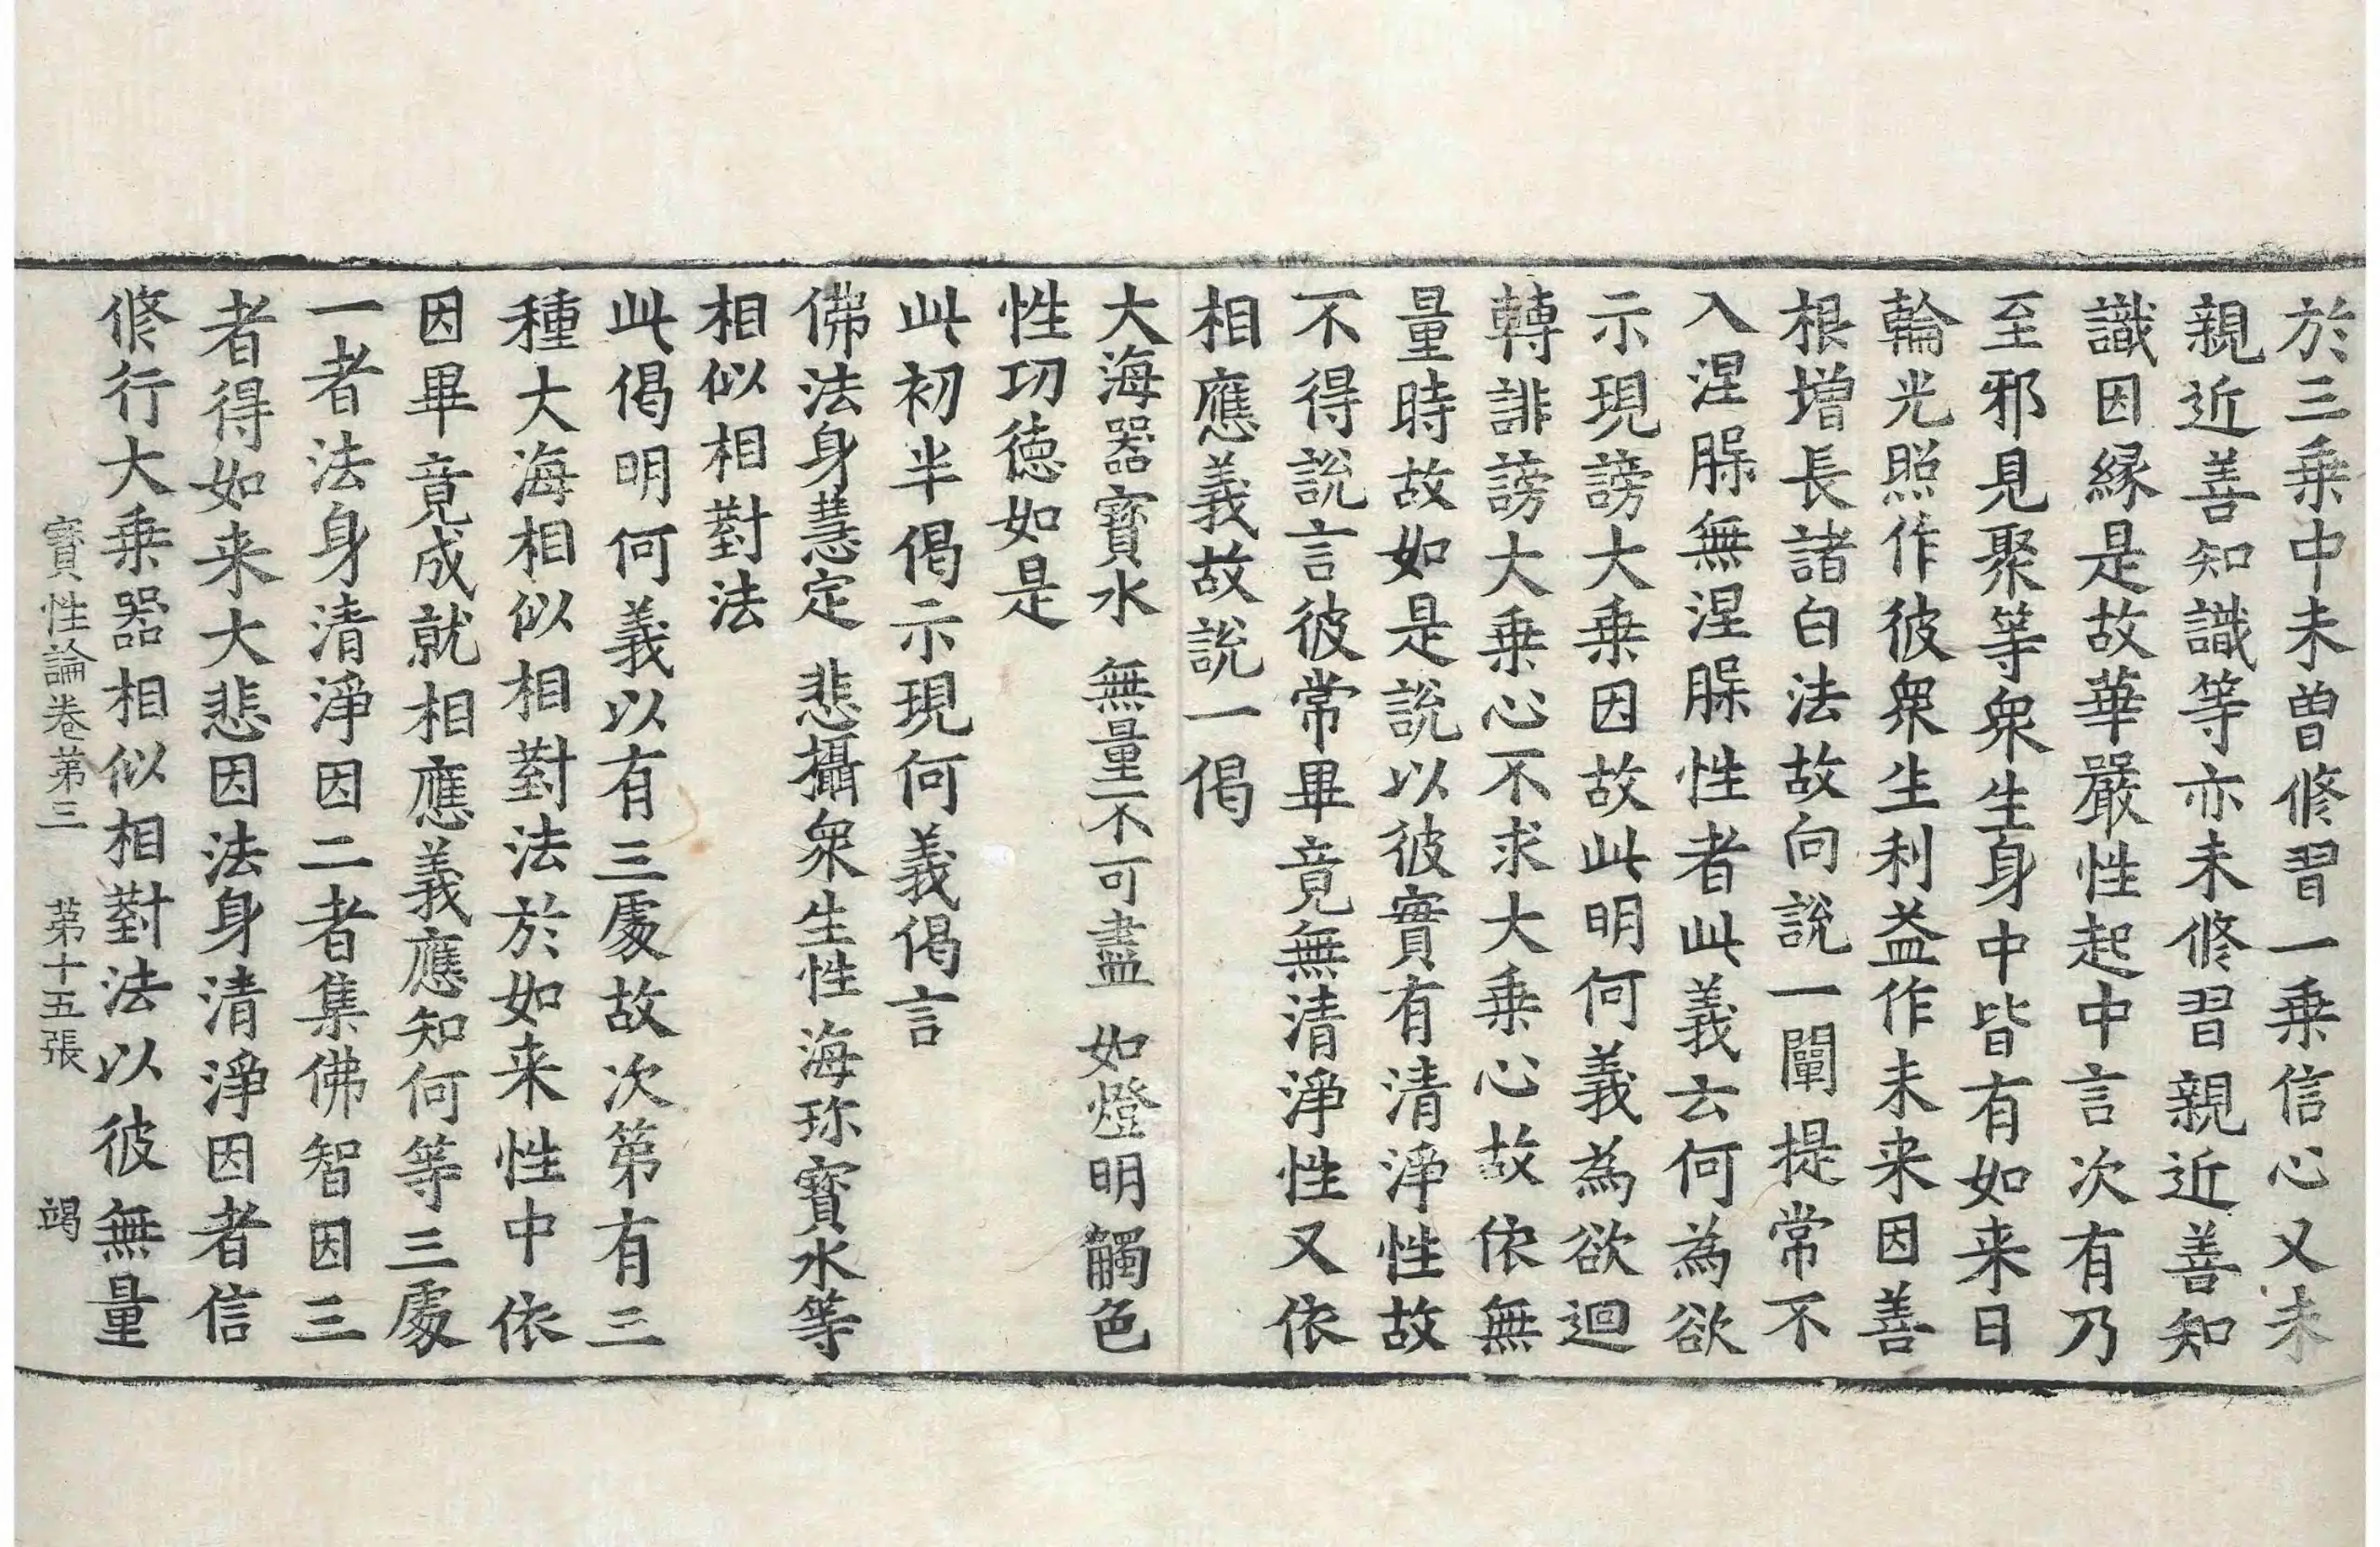 於三乗中未曽修習一乗信心又未
親近善知識等亦未修習親近善知
識因縁是故華嚴性起中言次有乃
至邪見聚等衆生身中皆有如来日
輪光照作彼衆生利益作未来因善
根增長諸白法故向說一闡提常不
入涅槃無涅槃性者此義云何為欲
示現謗大乗因故此明何義為欲迴
轉誹謗大乗心不求大乗心故依無
量時故如是說以彼實有清淨性故
不得說言彼常畢竟無清淨性又依
相應義故說一偈
大海器寳水　無量不可盡　如燈明觸色
性功徳如是
此初半偈示現何義偈言
佛法身慧定　悲攝衆生性　海珎寳水等
相似相對法
此偈明何義以有三處故次第有三
種大海相似相對法於如来性中依
因畢竟成就相應義應知何等三處
一者法身清淨因二者集佛智因三
者得如来大悲因法身清淨因者信
修行大乗器相似相對法以彼無量
寳性論卷第三　第十五張　竭